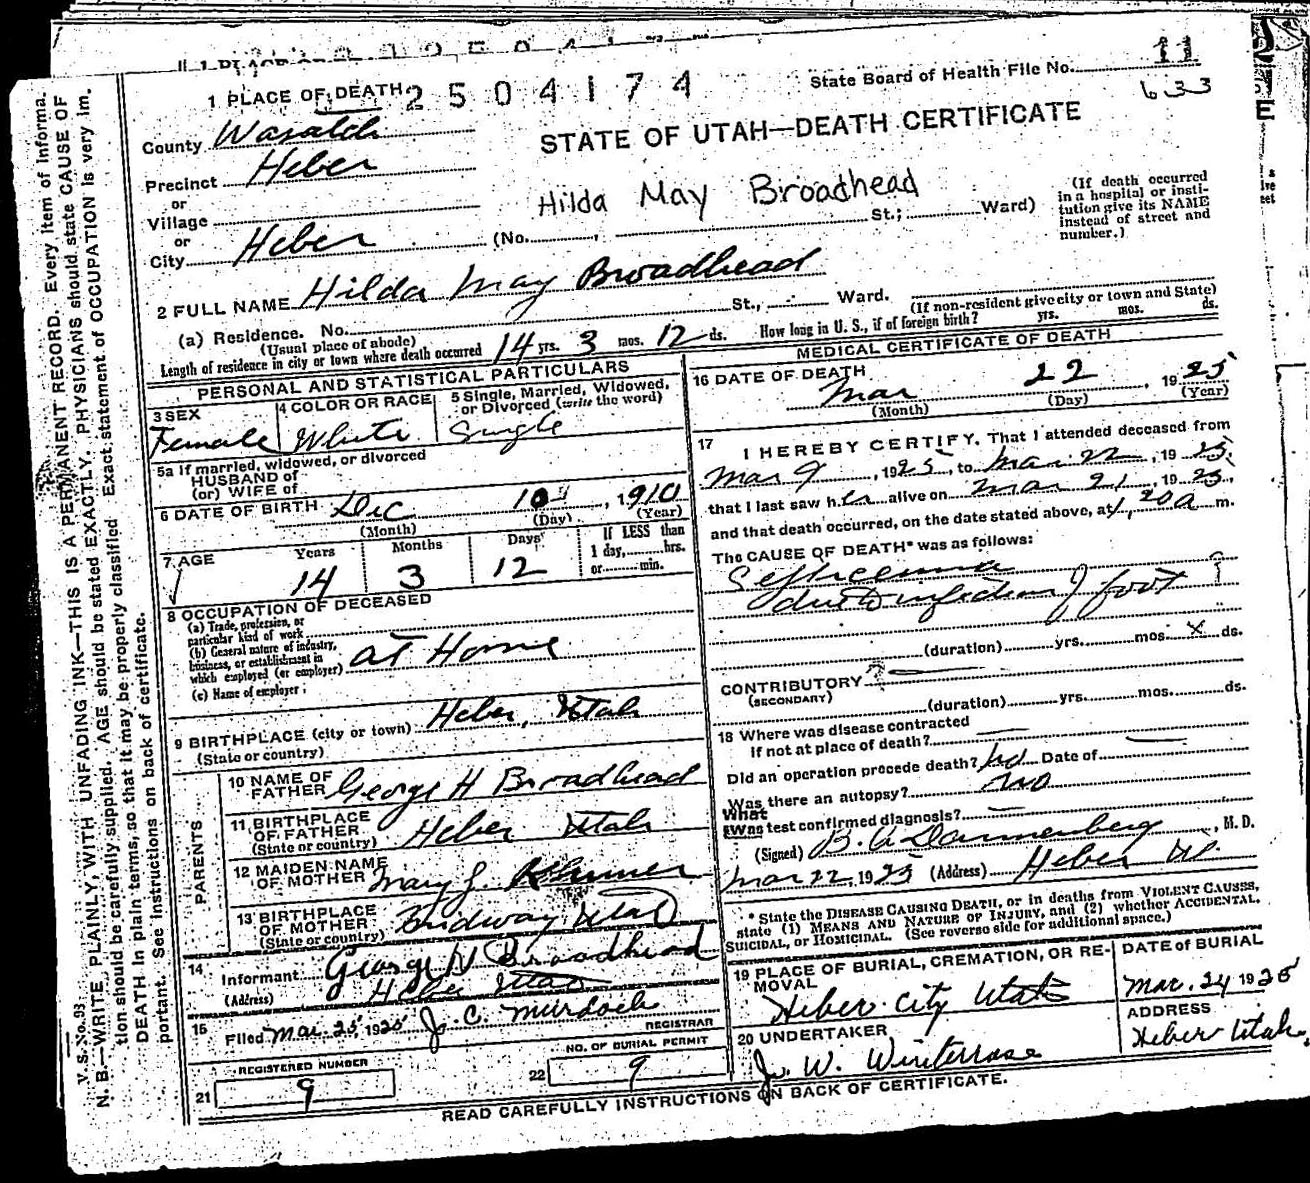 1 PLACE OF DEATH 2504174
State Board of Health File No. 11
633
County Wasatch
STATE OF UTAH—DEATH CERTIFICATE
Precinct Heber
or
Village
Hilda May Broadhead
or
City Heber (No. , St.; Ward)
(If death occurred
in a hospital or insti-
tution give its NAME
instead of street and
number.)
2 FULL NAME Hilda May Broadhead
(a) Residence. No. St., Ward.
(Usual place of abode)
(If non-resident give city or town and State)
Length of residence in city or town where death occurred 14 yrs. 3 mos. 12 ds. How long in U. S., if of foreign birth? yrs. mos. ds.
PERSONAL AND STATISTICAL PARTICULARS
3 SEX
Female
4 COLOR OR RACE
White
5 Single, Married, Widowed,
or Divorced (write the word)
Single
5a If married, widowed, or divorced
HUSBAND of
(or) WIFE of
6 DATE OF BIRTH Dec 10, 1910
(Month) (Day) (Year)
7 AGE Years Months Days
14 3 12
If LESS than
1 day, hrs.
or min.
8 OCCUPATION OF DECEASED
(a) Trade, profession, or
particular kind of work
(b) General nature of industry,
business, or establishment in
which employed (or employer) at Home
(c) Name of employer
9 BIRTHPLACE (city or town) Heber, Utah
(State or country)
PARENTS
10 NAME OF
FATHER George H Broadhead
11 BIRTHPLACE
OF FATHER Heber Utah
(State or country)
12 MAIDEN NAME
OF MOTHER Mary J.
13 BIRTHPLACE
OF MOTHER Midway, Utah
(State or country)
14
Informant George H Broadhead
(Address) Heber Utah
15
Filed Mar. 25, 1925 J. C. Murdock
REGISTRAR
REGISTERED NUMBER
21 9
NO. OF BURIAL PERMIT
22 9
MEDICAL CERTIFICATE OF DEATH
16 DATE OF DEATH
Mar 22, 1925
(Month) (Day) (Year)
17
I HEREBY CERTIFY, That I attended deceased from
Mar 9, 1925, to Mar 22, 1925,
that I last saw her alive on Mar 21, 1925,
and that death occurred, on the date stated above, at m.
The CAUSE OF DEATH* was as follows:
Septicemia
due to infection of foot
(duration) yrs. mos. x ds.
CONTRIBUTORY
(SECONDARY)
(duration) yrs. mos. ds.
18 Where was disease contracted
if not at place of death?
Did an operation precede death? No Date of
Was there an autopsy? No
What
Was test confirmed diagnosis?
(Signed) B. A. Dannenberg, M. D.
Mar 22, 1925 (Address) Heber Ut.
* State the DISEASE CAUSING DEATH, or in deaths from VIOLENT CAUSES,
state (1) MEANS AND NATURE OF INJURY, and (2) whether ACCIDENTAL,
SUICIDAL, or HOMICIDAL. (See reverse side for additional space.)
19 PLACE OF BURIAL, CREMATION, OR RE-
MOVAL
Heber City Utah
DATE of BURIAL
Mar. 24 1925
20 UNDERTAKER
J. W. Winterrose
ADDRESS
Heber Utah.
READ CAREFULLY INSTRUCTIONS ON BACK OF CERTIFICATE.
V. S. No. 93
N. B.—WRITE PLAINLY, WITH UNFADING INK—THIS IS A PERMANENT RECORD. Every item of informa-
tion should be carefully supplied. AGE should be stated EXACTLY. PHYSICIANS should state CAUSE OF
DEATH in plain terms, so that it may be properly classified. Exact statement of OCCUPATION is very im-
portant. See instructions on back of certificate.